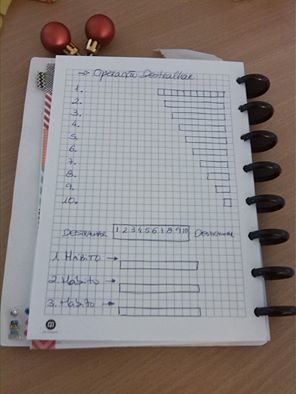 → Operação Destralhar
1.
2.
3.
4.
5.
6.
7.
8.
9.
10.
DESTRALHAR 1 2 3 4 5 6 7 8 9 10 DESTRALHAR
1. HÁBITO →
2. Hábito →
3. Hábito →